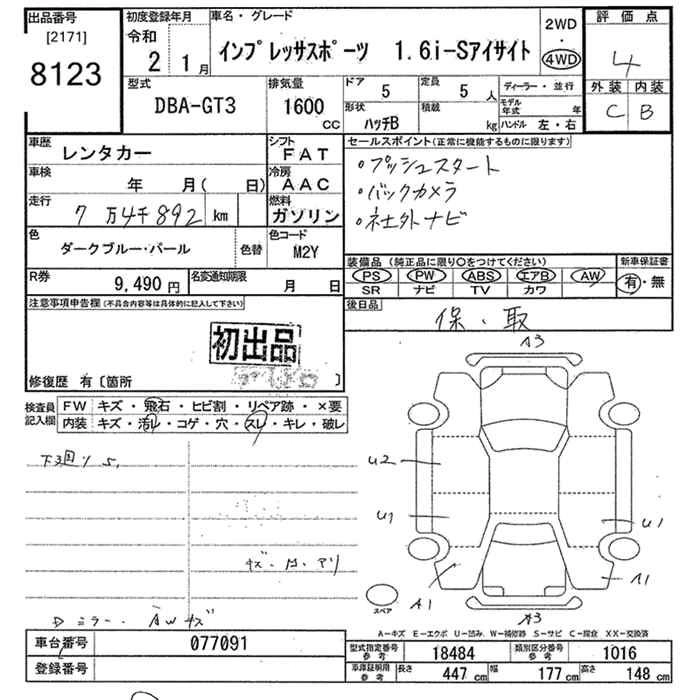 出品番号
[2171]
8123
初度登録年月
令和
2 1月
車名・グレード
インプレッサスポーツ 1.6i-Sアイサイト
2WD
・
4WD
評価点
4
外装 内装
C B
型式
DBA-GT3
排気量
1600
CC
ドア
5
定員
5 人
形状
ハッチB
積載
kg
ディーラー・並行
モデル年式 年
ハンドル 左・右
車歴
レンタカー
シフト
FAT
車検
年 月( 日)
冷房
AAC
走行
7万4千892 km
燃料
ガソリン
色
ダークブルー・パール
色替
色コード
M2Y
R券
9,490 円
名変通知期限
月 日
セールスポイント(正常に機能するものに限ります)
・プッシュスタート
・バックカメラ
・社外ナビ
装備品(純正品に限り○をつけてください)
PS PW ABS エアB AW
SR ナビ TV カワ
新車保証書
有・無
後日品
保・取
注意事項申告欄(不具合内容等は具体的に記入して下さい)
初出品
修復歴 有〔箇所 〕
検査員記入欄
FW キズ・飛石・ヒビ割・リペア跡・×要
内装 キズ・汚れ・コゲ・穴・スレ・キレ・破レ
下3廻りS,
キズ・凹・アリ
Dミラー・AWキズ
A3
U2
U1
U1
A1
A1
A3
スペア
A-キズ E-エクボ U-凹み W-補修跡 S-サビ C-腐食 XX-交換済
車台番号
077091
登録番号
型式指定番号参考 18484
類別区分番号参考 1016
車庫証明用参考 長さ 447 cm 幅 177 cm 高さ 148 cm